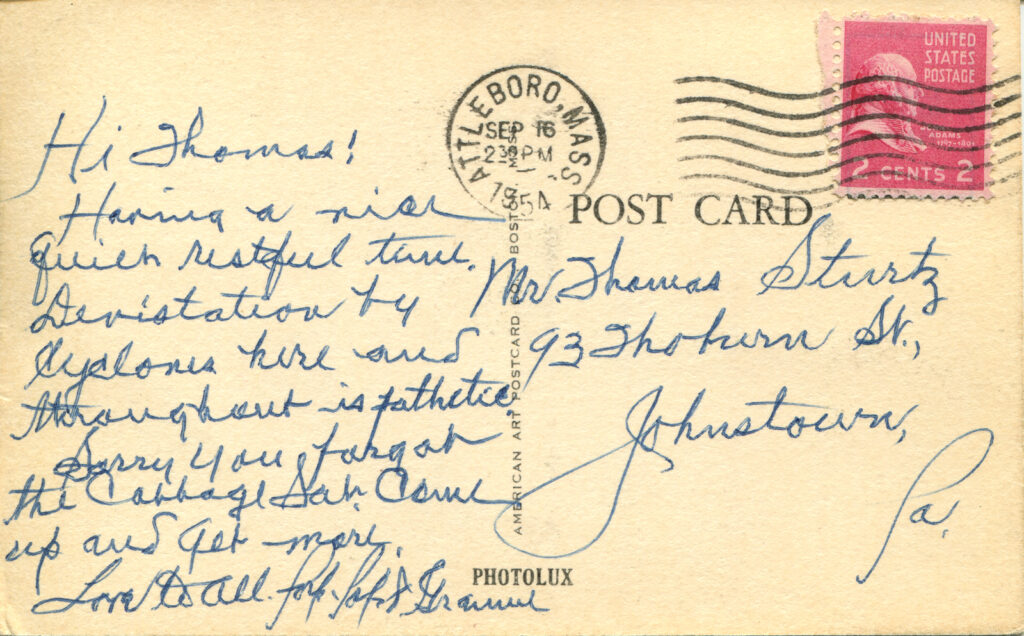 Hi Thomas!
Having a nice
quiet restful time.
Devistation by
Cyclones here and
throughout is pathetic
Sorry you forgot
the Cabbage Sat. Come
up and get more.
Love to All.
ATTLEBORO, MASS
SEP 16
2 30 PM
1954
UNITED
STATES
POSTAGE
ADAMS
1797-1801
2 CENTS 2
POST CARD
Mr Thomas Sturtz
93 Thoburn St.,
Johnstown,
Pa.
AMERICAN ART POSTCARD CO., BOSTON, MASS.
PHOTOLUX